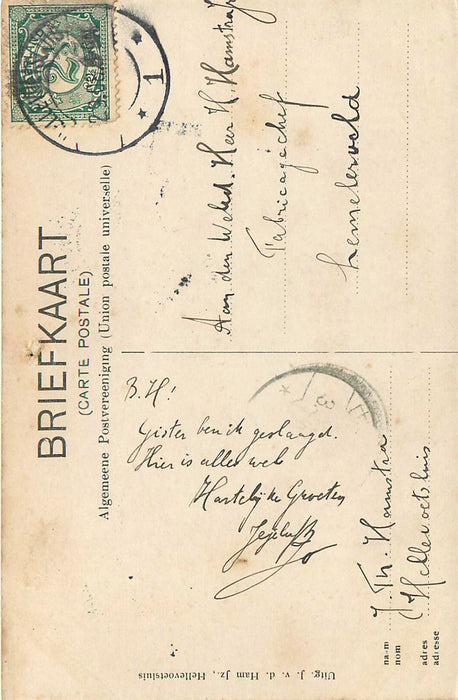 BRIEFKAART
(CARTE POSTALE)
Algemeene Postvereeniging (Union postale universelle)
1
Aan den
Heer H. Hamstra
Fabricagechef
Lemelerveld
B. H!
Gister ben ik geslaagd.
Hier is alles wel
Hartelijke Groeten
Jo
J. Th. Hamstra
Hellevoetsluis.
naam
nom
adres
adresse
Uitg. J. v. d. Ham Jz., Hellevoetsluis